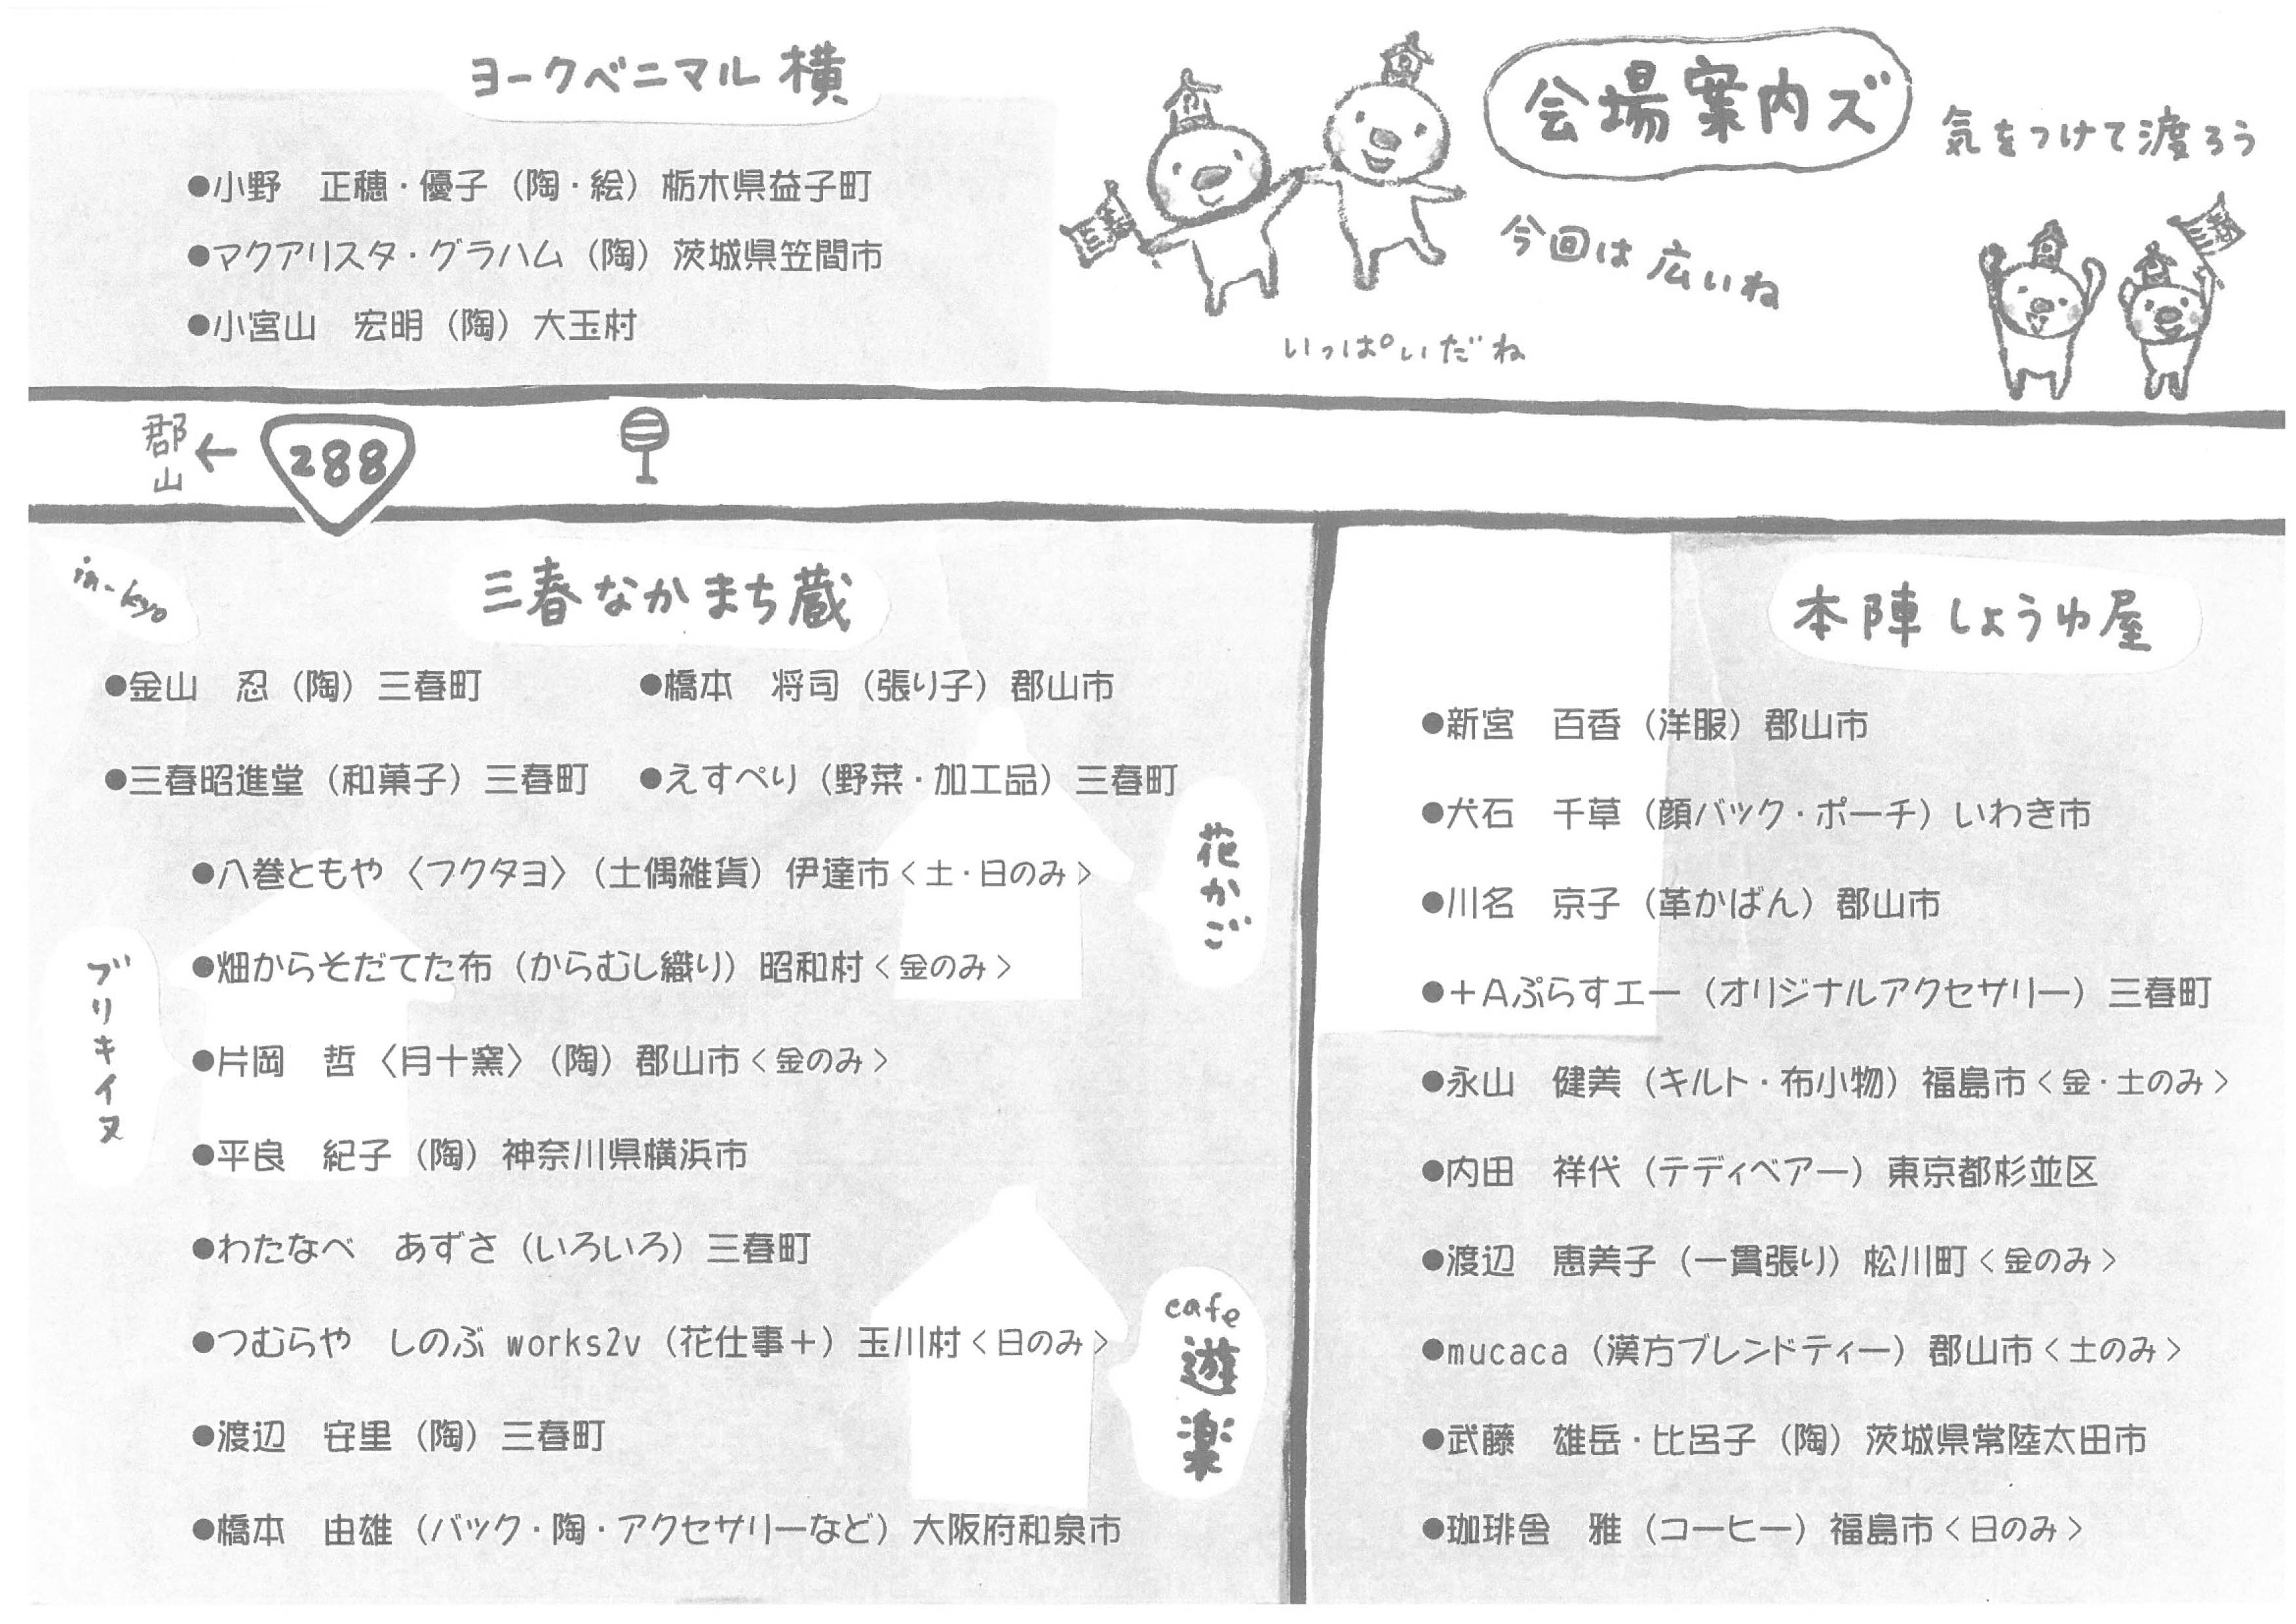 ヨークベニマル横
●小野　正穂・優子（陶・絵）栃木県益子町
●マクアリスタ・グラハム（陶）茨城県笠間市
●小宮山　宏明（陶）大玉村
会場案内ズ
気をつけて渡ろう
今回は広いね
いっぱいだね
三春
三春
郡山
←
288
in-kyo
三春なかまち蔵
●金山　忍（陶）三春町
●橋本　将司（張り子）郡山市
●三春昭進堂（和菓子）三春町
●えすぺり（野菜・加工品）三春町
●八巻ともや〈フクタヨ〉（土偶雑貨）伊達市＜土・日のみ＞
●畑からそだてた布（からむし織り）昭和村＜金のみ＞
●片岡　哲〈月十窯〉（陶）郡山市＜金のみ＞
●平良　紀子（陶）神奈川県横浜市
●わたなべ　あずさ（いろいろ）三春町
●つむらや　しのぶ works2v（花仕事＋）玉川村＜日のみ＞
●渡辺　安里（陶）三春町
●橋本　由雄（バック・陶・アクセサリーなど）大阪府和泉市
花かご
ブリキイヌ
cafe
遊楽
本陣しょうゆ屋
●新宮　百香（洋服）郡山市
●犬石　千草（顔バック・ポーチ）いわき市
●川名　京子（革かばん）郡山市
●＋Aぷらすエー（オリジナルアクセサリー）三春町
●永山　健美（キルト・布小物）福島市＜金・土のみ＞
●内田　祥代（テディベアー）東京都杉並区
●渡辺　恵美子（一貫張り）松川町＜金のみ＞
●mucaca（漢方ブレンドティー）郡山市＜土のみ＞
●武藤　雄岳・比呂子（陶）茨城県常陸太田市
●珈琲舎　雅（コーヒー）福島市＜日のみ＞